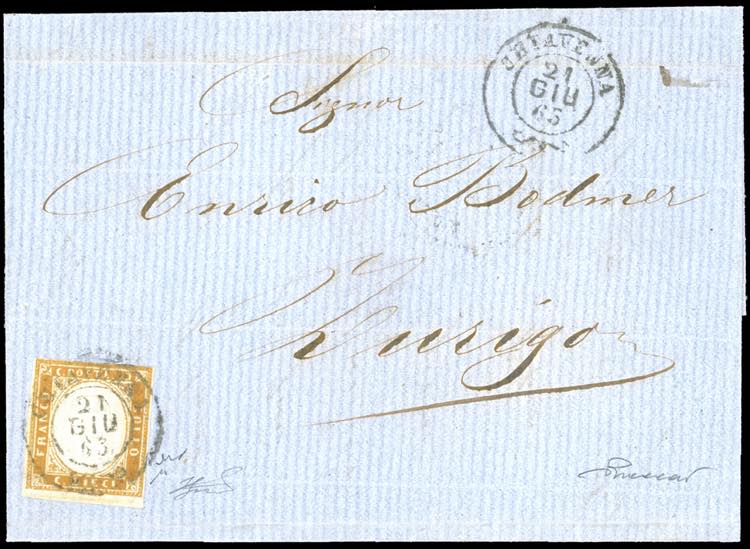 CHIAVENNA
21
GIU
63
Signor
Enrico Bodmer
Zurigo
C. POSTA
FRANCO
BOLLO
21
GIU
63
C. DIECI